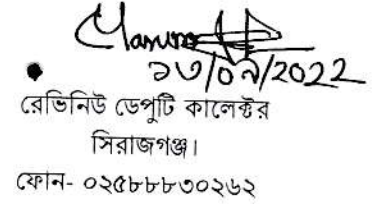 ১৩/০৯/2022
রেভিনিউ ডেপুটি কালেক্টর
সিরাজগঞ্জ।
ফোন- ০২৫৮৮৮৩০২৬২